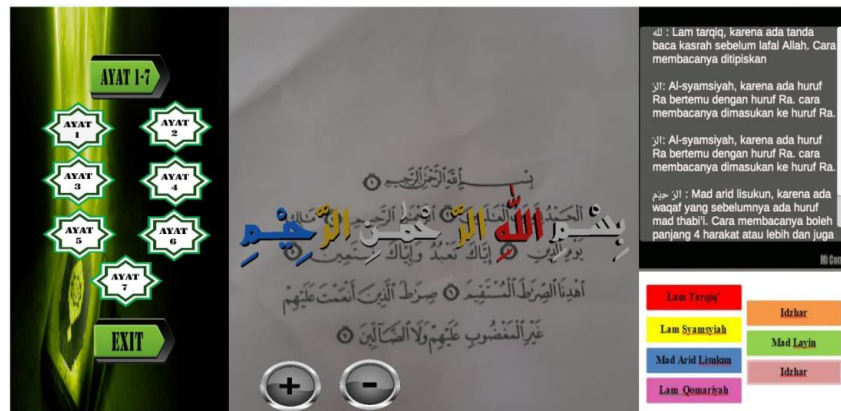 AYAT 1-7
AYAT 1
AYAT 2
AYAT 3
AYAT 4
AYAT 5
AYAT 6
AYAT 7
EXIT
بِسْمِ اللّٰهِ الرَّحْمٰنِ الرَّحِيْمِ ١
الْحَمْدُ
بِسْمِ اللّٰهِ الرَّحْمٰنِ الرَّحِيْمِ
يَوْمِ الدِّينِ إِيَّاكَ نَعْبُدُ وَإِيَّاكَ نَسْتَعِينُ
اهْدِنَا الصِّرَاطَ الْمُسْتَقِيمَ ٦ صِرَاطَ الَّذِينَ أَنْعَمْتَ عَلَيْهِمْ
غَيْرِ الْمَغْضُوبِ عَلَيْهِمْ وَلَا الضَّالِّينَ ٧
+ -
لله : Lam tarqiq, karena ada tanda
baca kasrah sebelum lafal Allah. Cara
membacanya ditipiskan
الرّ: Al-syamsiyah, karena ada huruf
Ra bertemu dengan huruf Ra. cara
membacanya dimasukan ke huruf Ra.
الرّ: Al-syamsiyah, karena ada huruf
Ra bertemu dengan huruf Ra. cara
membacanya dimasukan ke huruf Ra.
الرّ حيْم : Mad arid lisukun, karena ada
waqaf yang sebelumnya ada huruf
mad thabi'i. Cara membacanya boleh
panjang 4 harakat atau lebih dan juga
Lam Tarqiq'
Lam Syamsyiah
Mad Arid Lisukun
Lam Qomariyah
Idzhar
Mad Layin
Idzhar